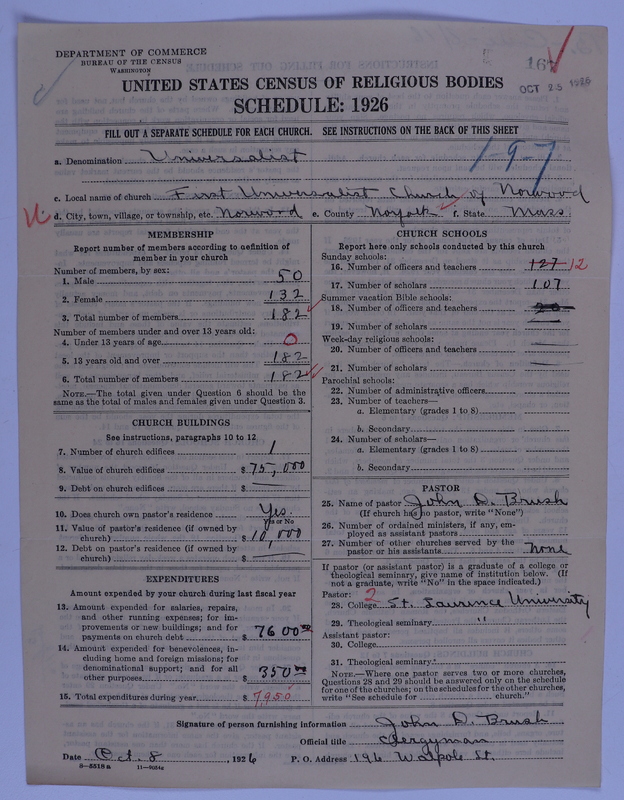 DEPARTMENT OF COMMERCE
BUREAU OF THE CENSUS
WASHINGTON
167
OCT 23 1926
UNITED STATES CENSUS OF RELIGIOUS BODIES
SCHEDULE: 1926
FILL OUT A SEPARATE SCHEDULE FOR EACH CHURCH. SEE INSTRUCTIONS ON THE BACK OF THIS SHEET
a. Denomination Universalist
1-9-7
c. Local name of church First Universalist Church of Norwood
d. City, town, village, or township, etc. Norwood e. County Norfolk f. State Mass
MEMBERSHIP
Report number of members according to definition of
member in your church
Number of members, by sex:
1. Male 50
2. Female 132
3. Total number of members 182
Number of members under and over 13 years old:
4. Under 13 years of age 0
5. 13 years old and over 182
6. Total number of members 182
NOTE.—The total given under Question 6 should be
same as the total of males and females given under Question 3.
CHURCH BUILDINGS
See instructions, paragraphs 10 to 12
7. Number of church edifices 1
8. Value of church edifices $ 75,000
9. Debt on church edifices $
10. Does church own pastor's residence Yes.
Yes or No
11. Value of pastor's residence (if owned by
church) $ 10,000
12. Debt on pastor's residence (if owned by
church) $
EXPENDITURES
Amount expended by your church during last fiscal year
13. Amount expended for salaries, repairs,
and other running expenses; for im-
provements or new buildings; and for
payments on church debt $ 7600 00
14. Amount expended for benevolences, in-
cluding home and foreign missions; for
denominational support; and for all
other purposes $ 350 00
15. Total expenditures during year $ 7,950
CHURCH SCHOOLS
Report here only schools conducted by this church
Sunday schools:
16. Number of officers and teachers 127 12
17. Number of scholars 107
Summer vacation Bible schools:
18. Number of officers and teachers
19. Number of scholars
Week-day religious schools:
20. Number of officers and teachers
21. Number of scholars
Parochial schools:
22. Number of administrative officers
23. Number of teachers—
a. Elementary (grades 1 to 8)
b. Secondary
24. Number of scholars—
a. Elementary (grades 1 to 8)
b. Secondary
PASTOR
25. Name of pastor John D. Brush
(If church has no pastor, write "None")
26. Number of ordained ministers, if any, em-
ployed as assistant pastors
27. Number of other churches served by the
pastor or his assistants None
If pastor (or assistant pastor) is a graduate of a college or
theological seminary, give name of institution below. (If
not a graduate, write "No" in the space indicated.)
Pastor: 2
28. College St. Laurence University
29. Theological seminary "
Assistant pastor:
30. College
31. Theological seminary
NOTE.—Where one pastor serves two or more churches,
Questions 28 and 29 should be answered only on the schedule
for one of the churches; on the schedules for the other churches,
write "See schedule for church."
Signature of person furnishing information John D. Brush
Official title Clergyman
Date Oct. 8, 1926 P. O. Address 196 Walpole St.
8-5518 a 11-9054a